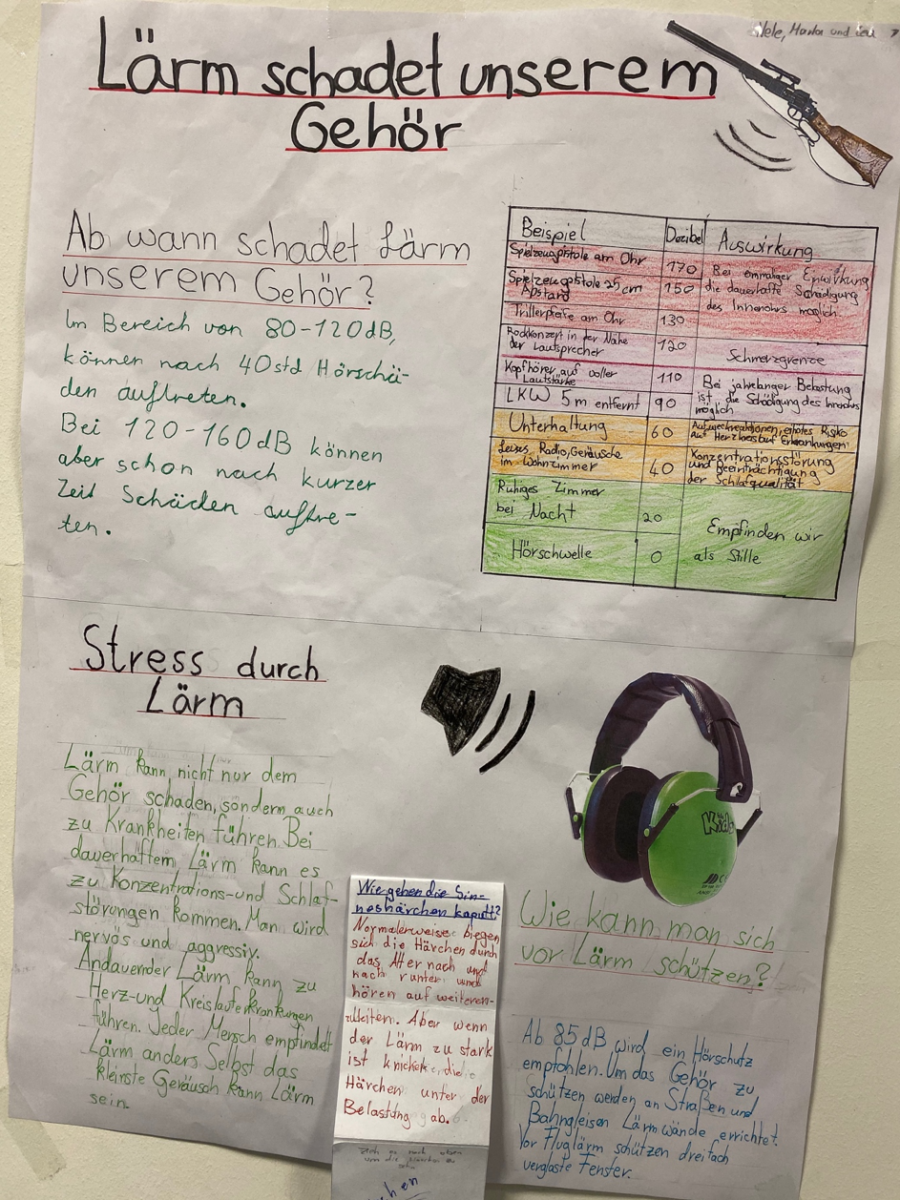 Lärm schadet unserem
Gehör
Ab wann schadet Lärm
unserem Gehör?
Im Bereich von 80-120dB,
können nach 40std Hörschä-
den auftreten.
Bei 120-160dB können
aber schon nach kurzer
Zeit Schäden auftre-
ten.
Beispiel Dezibel Auswirkung
Spielzeugpistole am Ohr 170
Spielzeugpistole 25cm Abstand 150
Trillerpfeife am Ohr 130
Bei einmaliger Einwirkung
die dauerhafte Schädigung
des Innenohrs möglich
Rockkonzert in der Nähe
der Lautsprecher 120
Schmerzgrenze
Kopfhörer auf voller
Lautstärke 110
LKW 5m entfernt 90
Bei jahrelanger Belastung
ist die Schädigung des Innenohrs
möglich
Unterhaltung 60
Risiko
auf Herzkreislauf Erkrankungen
Leises Radio, Geräusche
im Wohnzimmer 40
Konzentrationsstörung
und Beeinträchtigung
der Schlafqualität
Ruhiges Zimmer
bei Nacht 20
Hörschwelle 0
Empfinden wir
als Stille
Stress durch
Lärm
Lärm kann nicht nur dem
Gehör schaden, sondern auch
zu Krankheiten führen. Bei
dauerhaftem Lärm kann es
zu Konzentrations-und Schlaf-
störungen kommen. Man wird
nervös und aggressiv.
Andauernder Lärm kann zu
Herz-und Kreislauferkrankungen
führen. Jeder Mensch empfindet
Lärm anders. Selbst das
kleinste Geräusch kann Lärm
sein.
Kids
Wie gehen die Sin-
neshärchen kaputt?
Normalerweise biegen
sich die Härchen durch
das Alter nach und
nach runter und
hören auf weiterzu-
leiten. Aber wenn
der Lärm zu stark
ist knicken die
Härchen unter der
Belastung ab.
Wie kann man sich
vor Lärm schützen?
Ab 85dB wird ein Hörschutz
empfohlen. Um das Gehör zu
schützen werden an Straßen und
Bahngleisen Lärmwände errichtet.
Vor Fluglärm schützen dreifach
verglaste Fenster.